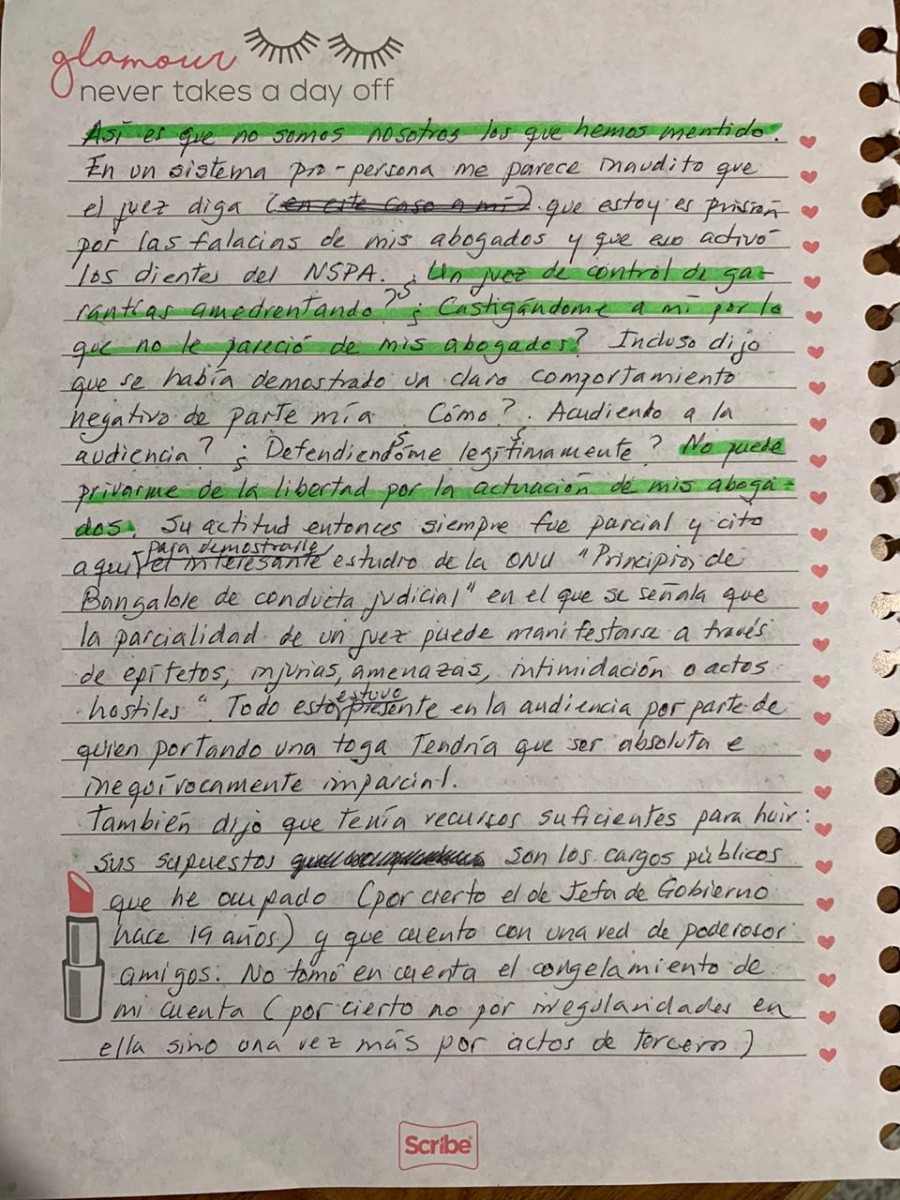 glamour
never takes a day off
Así es que no somos nosotros los que hemos mentido.
En un sistema pro-persona me parece inaudito que
el juez diga (en este caso a mí) que estoy es prisión
por las falacias de mis abogados y que eso activó
los dientes del NSPA. ¿Un juez de control de ga-
rantías amedrentando? ¿Castigándome a mí por lo
que no le pareció de mis abogados? Incluso dijo
que se había demostrado un claro comportamiento
negativo de parte mía. Cómo?. Acudiendo a la
audiencia? ¿Defendiendome legítimamente? No puede
privarme de la libertad por la actuación de mis aboga-
dos. Su actitud entonces siempre fue parcial y cito
para demostrarle
aquí el interesante estudio de la ONU "Principios de
Bangalore de conducta judicial" en el que se señala que
la parcialidad de un juez puede manifestarse a través
de epítetos, injurias, amenazas, intimidación o actos
estuvo
hostiles". Todo esto presente en la audiencia por parte de
quien portando una toga tendría que ser absoluta e
inequívocamente imparcial.
También dijo que tenía recursos suficientes para huir:
sus supuestos son los cargos públicos
que he ocupado (por cierto el de Jefa de Gobierno
hace 19 años) y que cuento con una red de poderosos
amigos. No tomó en cuenta el congelamiento de
mi cuenta (por cierto no por irregularidades en
ella sino una vez más por actos de terceros)
Scribe